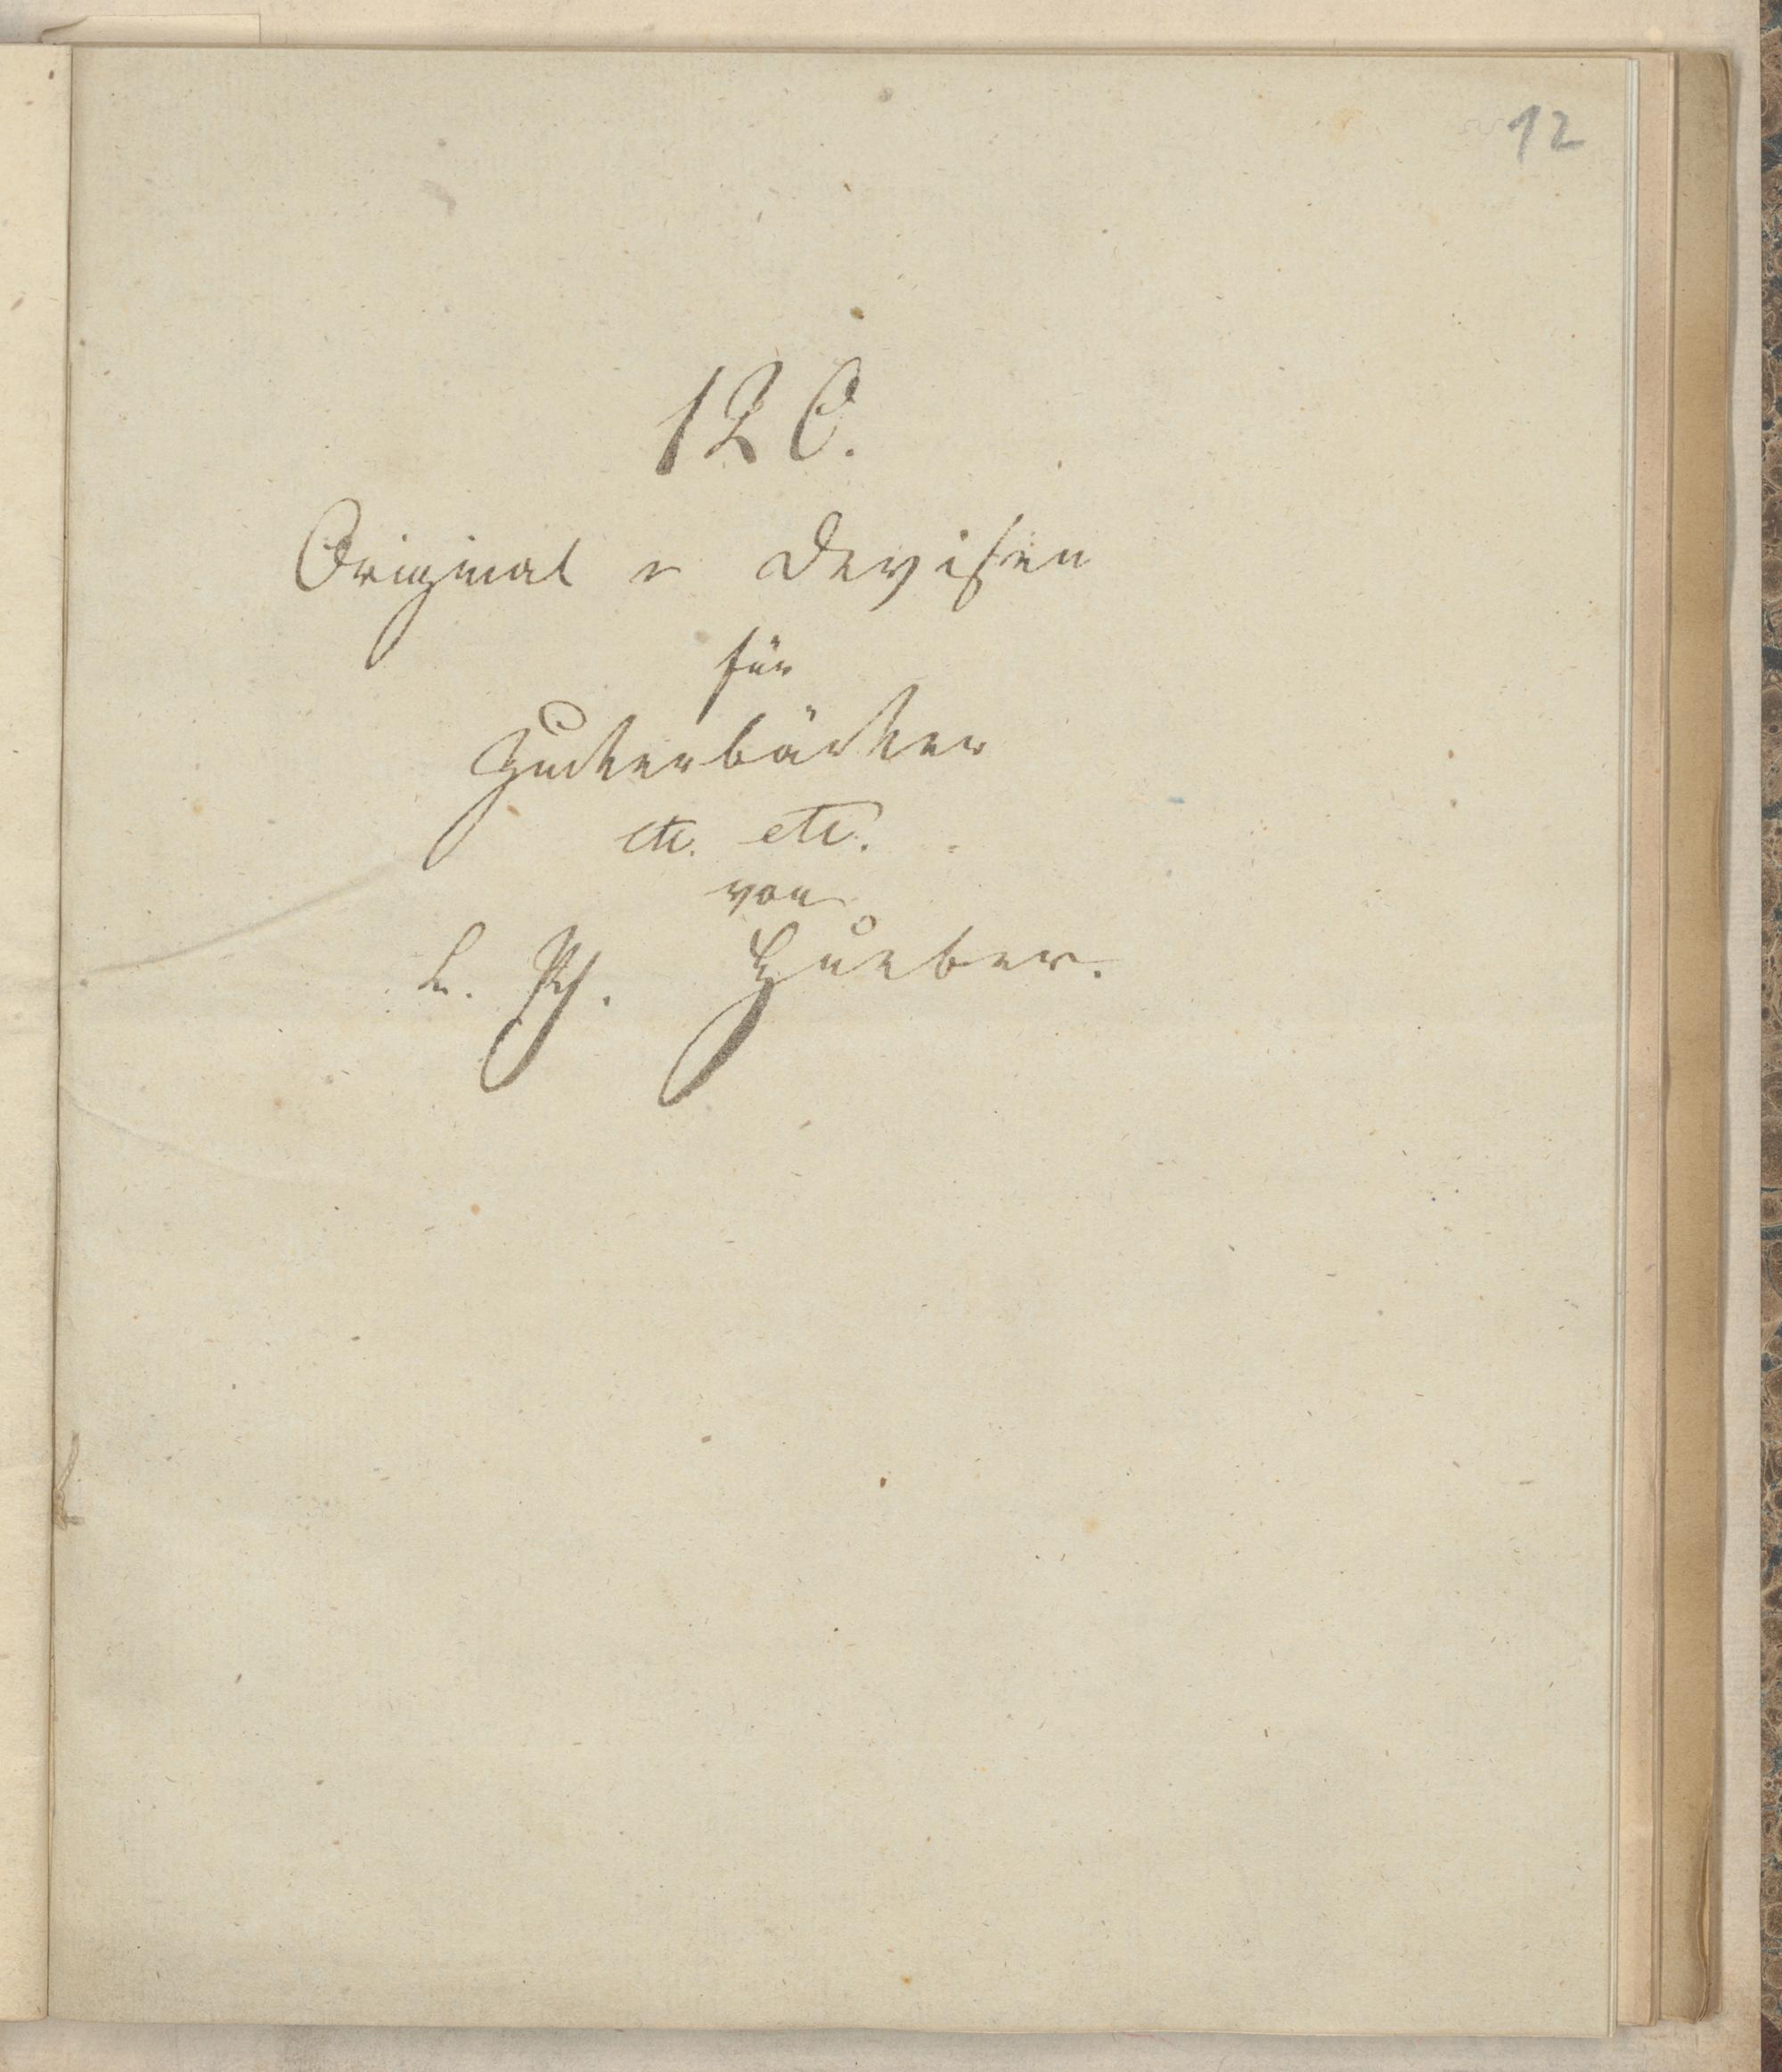 12
120.
Original - Devisen
für
Zuckerbäcker
etc. etc.
von
L. Ph. Hueber.